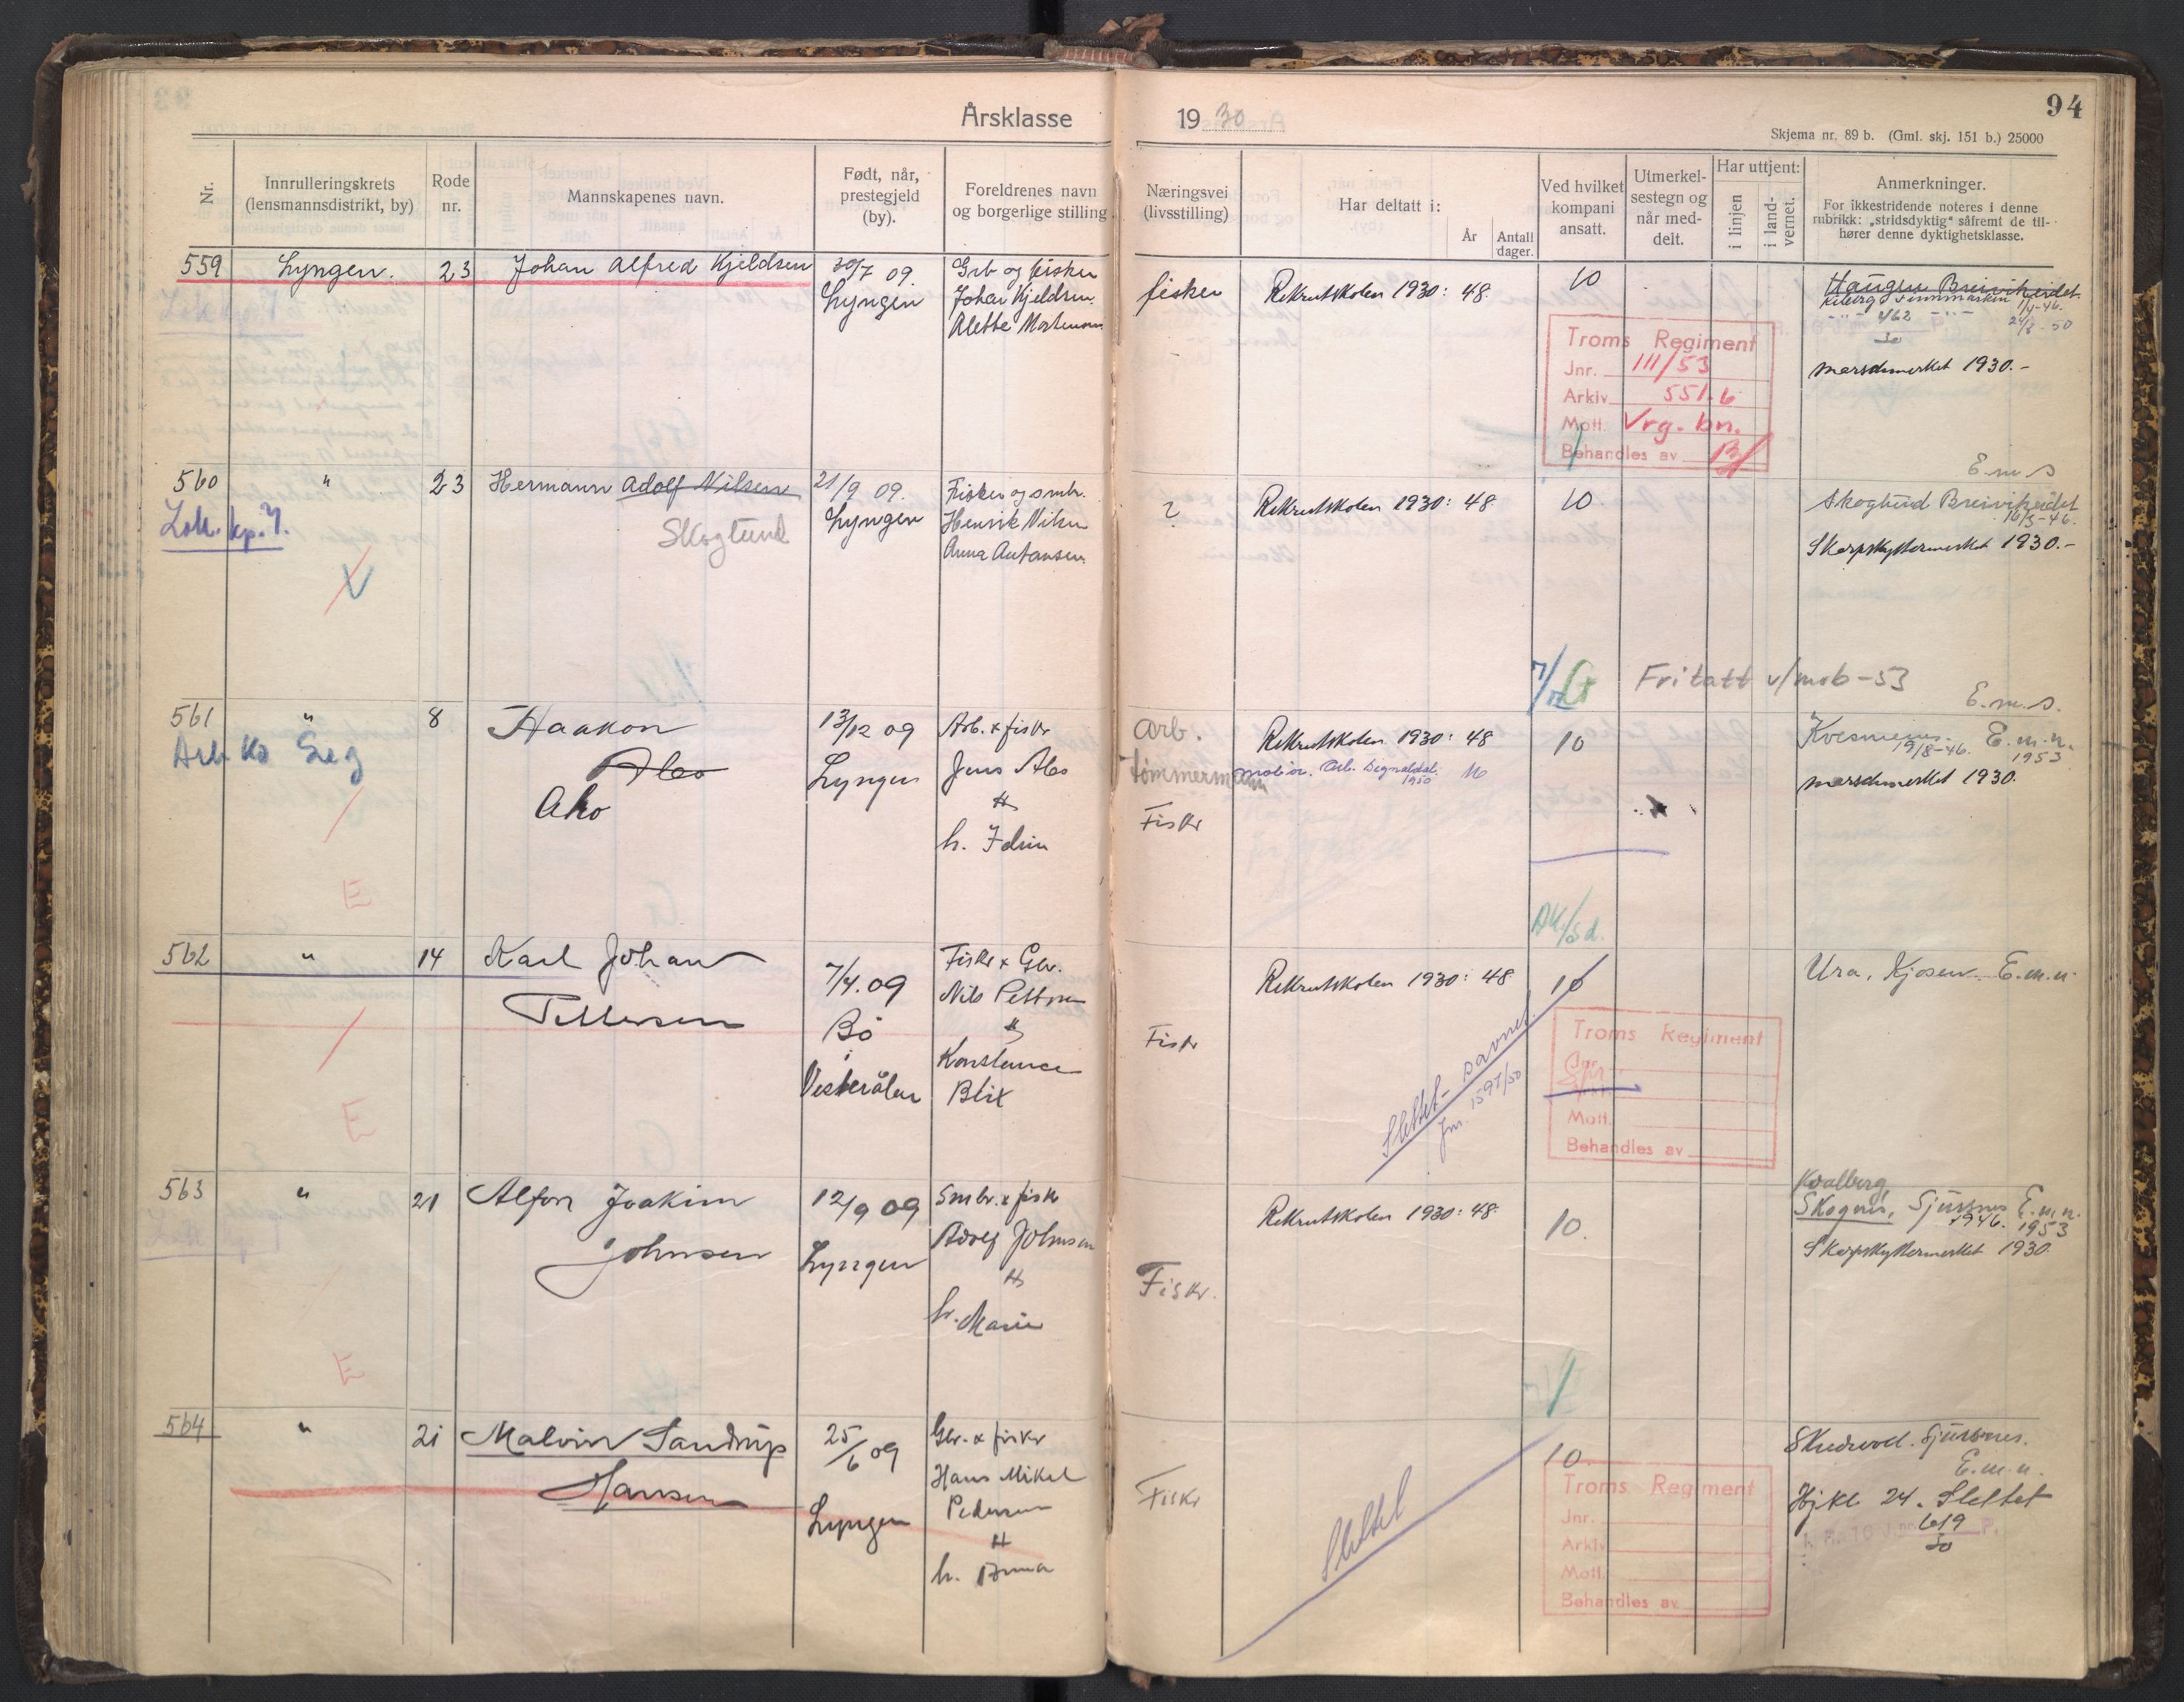 Årsklasse 1930
94
Skjema nr. 89 b. (Gml. skj. 151 b.) 25000
Nr.
Innrulleringskrets
(lensmannsdistrikt, by)
Rode
nr.
Mannskapenes navn.
Født, når,
prestegjeld
(by).
Foreldrenes navn
og borgerlige stilling
Næringsvei
(livsstilling)
Har deltatt i:
År
Antall
dager.
Ved hvilket
kompani
ansatt.
Utmerkel-
sestegn og
når med-
delt.
Har uttjent:
i linjen
i land-
vernet.
Anmerkninger.
For ikkestridende noteres i denne
rubrikk: „stridsdyktig" såfremt de til-
hører denne dyktighetsklasse.
559 Lyngen. 23 Johan Alfred Kjeldsen
30/7 09.
Lyngen
Grb og fisker
Johan Kjeldsen
Alette Mortensen
fisker
Rekrutskolen 1930: 48.
10
Haugen Breivikeidet
Kiberg Finnmarken 1/4-46.
Marschmerket 1930.-
Troms Regiment
Jnr. 111/53
Arkiv 551.6
Mott. Vrg. bn.
Behandles av
560 " 23 Hermann Adolf Nilsen
Skoglund
Lok. kp. 7.
21/9 09.
Lyngen
Fisker og smbr.
Henrik Nilsen
Anna Antonsen
?
Rekrutskolen 1930: 48.
10
E.m.s
Skoglund Breivikeidet
16/5-46.
Skarpskyttermerket 1930.-
Fritatt v/mob-53
561 " 8 Haakon
Alео
Aho
Arb Ko Leg
13/12 09
Lyngen
Arb. & fiskr
Jens Aho
H
h. Idrin
Arb.
Tømmermann
Fiskr
Rekrutskolen 1930: 48
10
E.m.s.
Kvesmenes. E.m.n.
19/8-46. 1953
Marschmerket 1930.
E
562 " 14 Karl Johan
Pettersen
7/4. 09
Bø
i
Vesterålen
Fiskr & Gbr.
Nils Pettersen
H
Konstance
Blix
Fiskr
Rekrutskolen 1930: 48
10
Slettet - savnet.
Jnr. 1597/50
Ura, Kjosen. E.m.n.
Troms Regiment
Jnr.
Mott.
Behandles av
E
563 " 21 Alfon Joakim
Johnsen
12/9 09
Lyngen
Smbr. & fiskr
Adolf Johnsen
H
h. Marie
Fiskr.
Rekrutskolen 1930: 48.
10.
Kvalberg,
Skognes, Sjursnes E.m.n.
1946. 1953
Skarpskyttermerket 1930.
E
564 " 21 Malvin Sandrup
Hansen
25/6 09
Lyngen
Gbr. & fiskr
Hans Mikal
Pedersen
H
h. Anna
Fiskr
Slettet
10.
Troms Regiment
Jnr.
Arkiv
Mott.
Behandles av
Skredvol. Sjursnes.
E.m.n.
Hjkl 24. Slettet
619
50